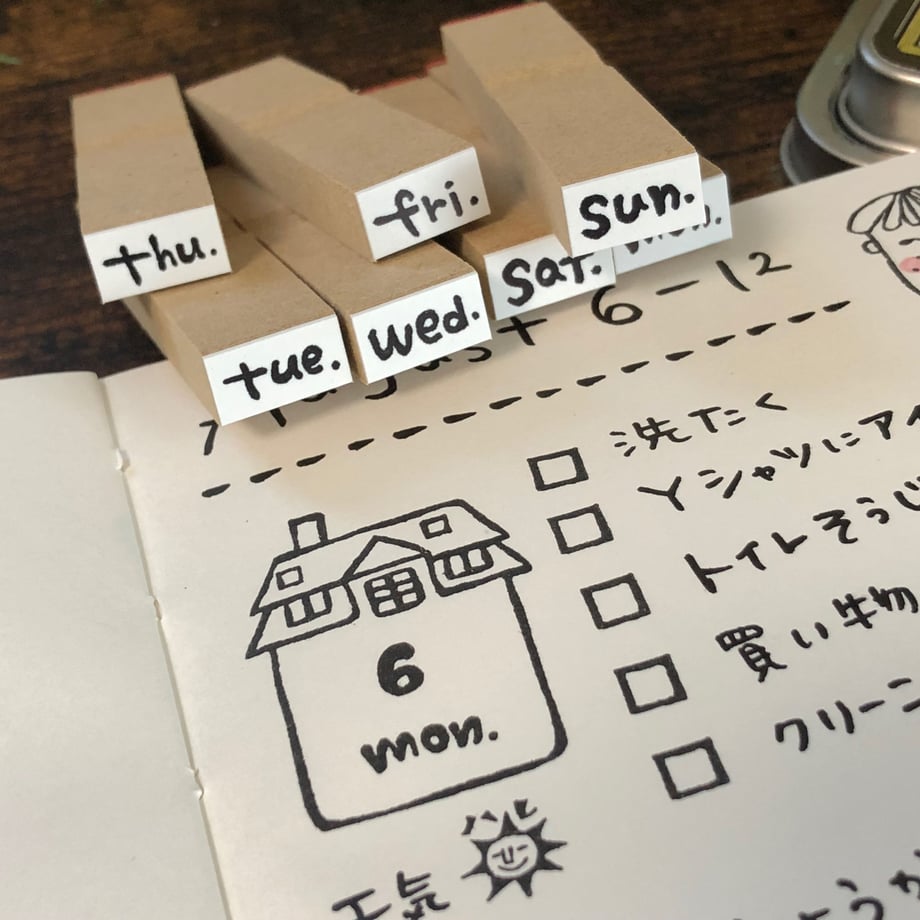 thu.
fri.
sun.
sat.
mon.
tue.
wed.
August 6-12
洗たく
Yシャツにアイ
トイレそうじ
買い物
クリーニ
6
mon.
天気